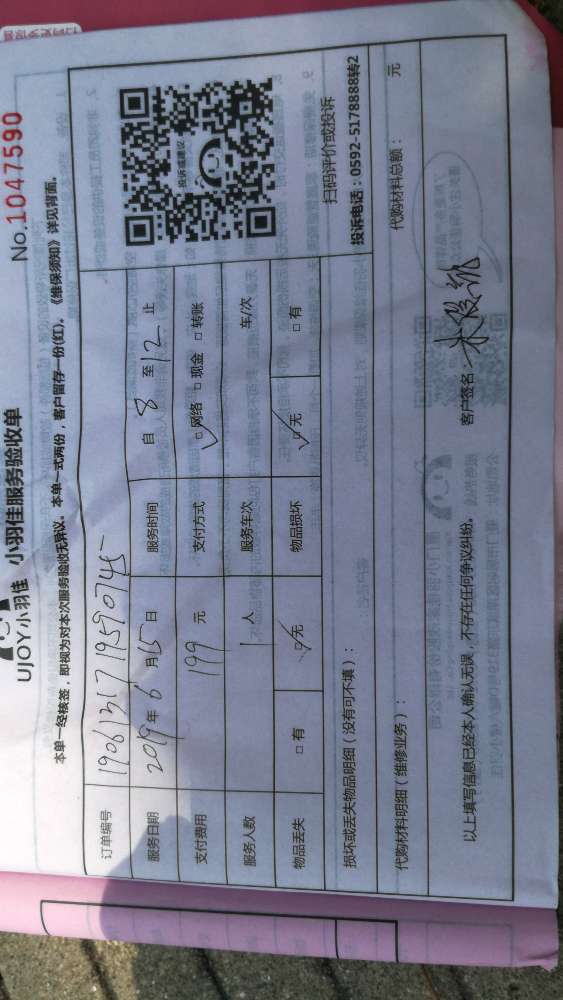 No.1047590
UJOY小羽佳 小羽佳服务验收单
本单一经核签，即视为对本次服务验收无异议。本单一式两份，客户留存一份(红)。《维保须知》详见背面。
订单编号 1906131719590745
服务日期 2019年6月15日 服务时间 自8至12止
支付费用 199元 支付方式 ☑网络 □现金 □转账
服务人数 1人 服务车次 车/次
物品丢失 □有 ☑无 物品损坏 ☑无 □有
投诉或建议
扫码评价或投诉
投诉电话：0592-5178888转2
损坏或丢失物品明细（没有可不填）：
代购材料明细（维修业务）： 代购材料总额： 元
以上填写信息已经本人确认无误，不存在任何争议纠纷。 客户签名：